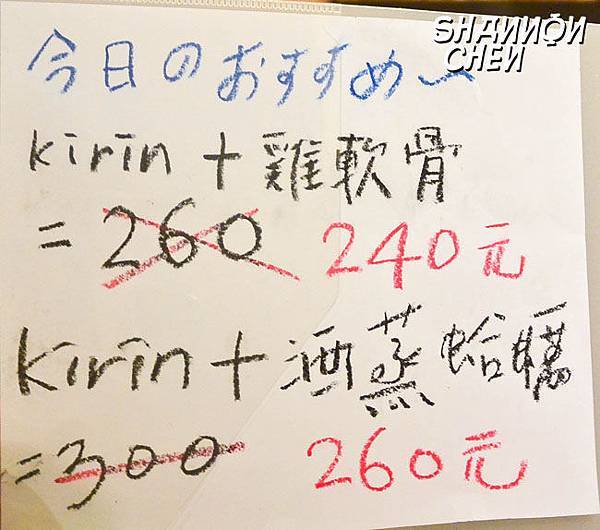 SHANNON
CHEN
今日のおすすめ~
kirin + 雞軟骨
= 260 240元
kirin + 酒蒸蛤蠣
= 300 260元